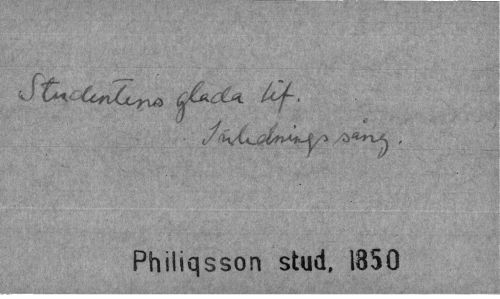 Studentens glada lif.
Inledningssång.
Philiqsson stud, 1850